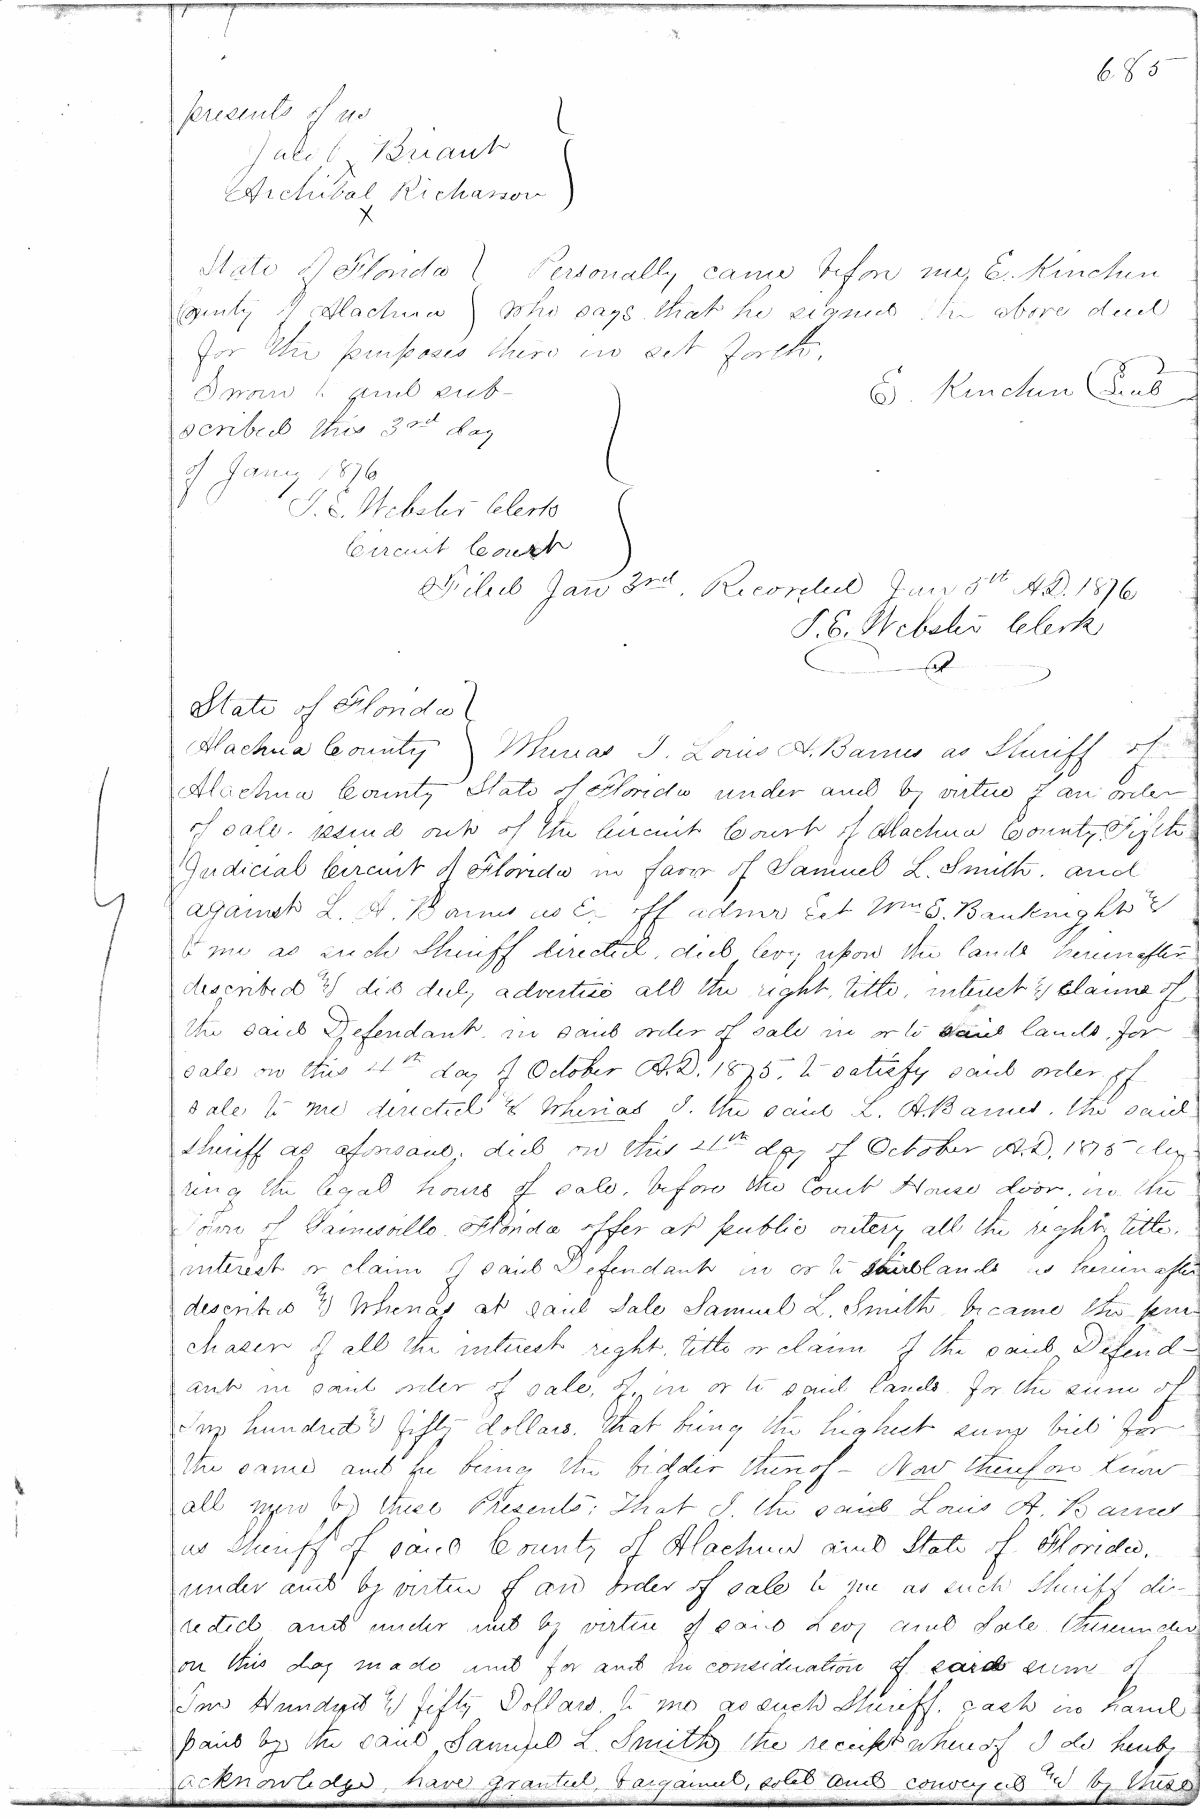 685
presents of us
Jacob x Briant
Archibal Richarson
x
State of Florida } Personally came before me, E. Kinchen
County of Alachua } who says that he signed the above deed
for the purposes there in set forth.
Sworn to and sub-
E. Kinchen Seal
scribed this 3rd day
of Jany 1876
J. E. Webster Clerk
Circuit Court
Filed Jan 3rd. Recorded Jan 5th A.D. 1876
J. E. Webster Clerk
State of Florida }
Alachua County } Whereas I. Louis A. Barnes as Sheriff of
Alachua County State of Florida under and by virtue of an order
of sale. issued out of the Circuit Court of Alachua County, Fifth
Judicial Circuit of Florida in favor of Samuel L. Smith. and
against L. A. Barnes as Ex off admr Est Wm E. Bauknight &
to me as such Sheriff directed, did levy upon the lands hereinafter
described & did duly advertise all the right, title, interest & claims of
the said Defendant in said order of sale in or to said lands, for
sale on this 4th day of October A.D. 1875, to satisfy said order of
sale to me directed & Whereas I. the said L. A. Barnes. the said
Sheriff as aforesaid, did on this 4th day of October A.D. 1875 du-
ring the legal hours of sale, before the Court House door, in the
Town of Gainesville Florida offer at public outcry all the right, title,
interest or claim of said Defendant in or to said lands as hereinafter
described & Whereas at said Sale Samuel L. Smith became the pur-
chaser of all the interest right, title or claim of the said Defend-
ant in said order of sale, of, in or to said lands for the sum of
Two hundred & fifty dollars. that being the highest sum bid for
the same and he being the bidder thereof - Now therefore Know
all men by these Presents: That I. the said Louis A. Barnes
as Sheriff of said County of Alachua and State of Florida,
under and by virtue of an order of sale to me as such Sheriff di-
rected and under and by virtue of said Levy and Sale thereunder
on this day made and for and in consideration of said sum of
Two Hundred & fifty Dollars to me as such Sheriff. cash in hand
paid by the said Samuel L. Smith the receipt whereof I do hereby
acknowledge, have granted, bargained, sold and conveyed & by these